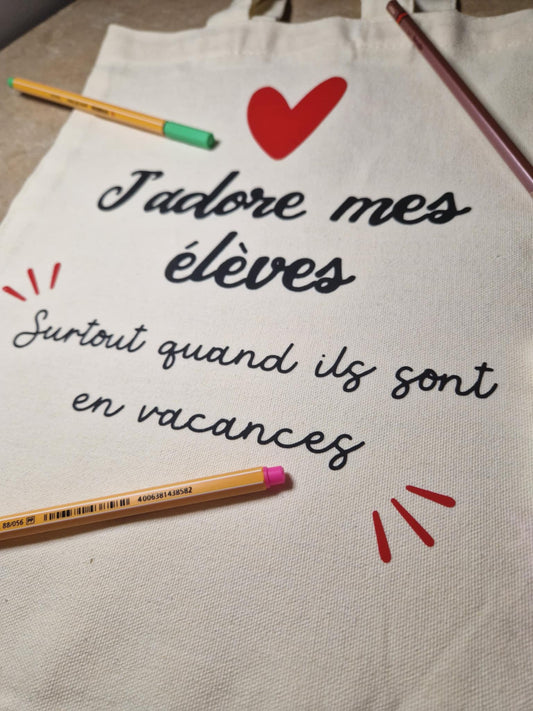 J'adore mes
élèves
Surtout quand ils sont
en vacances
88/056
4006381438582